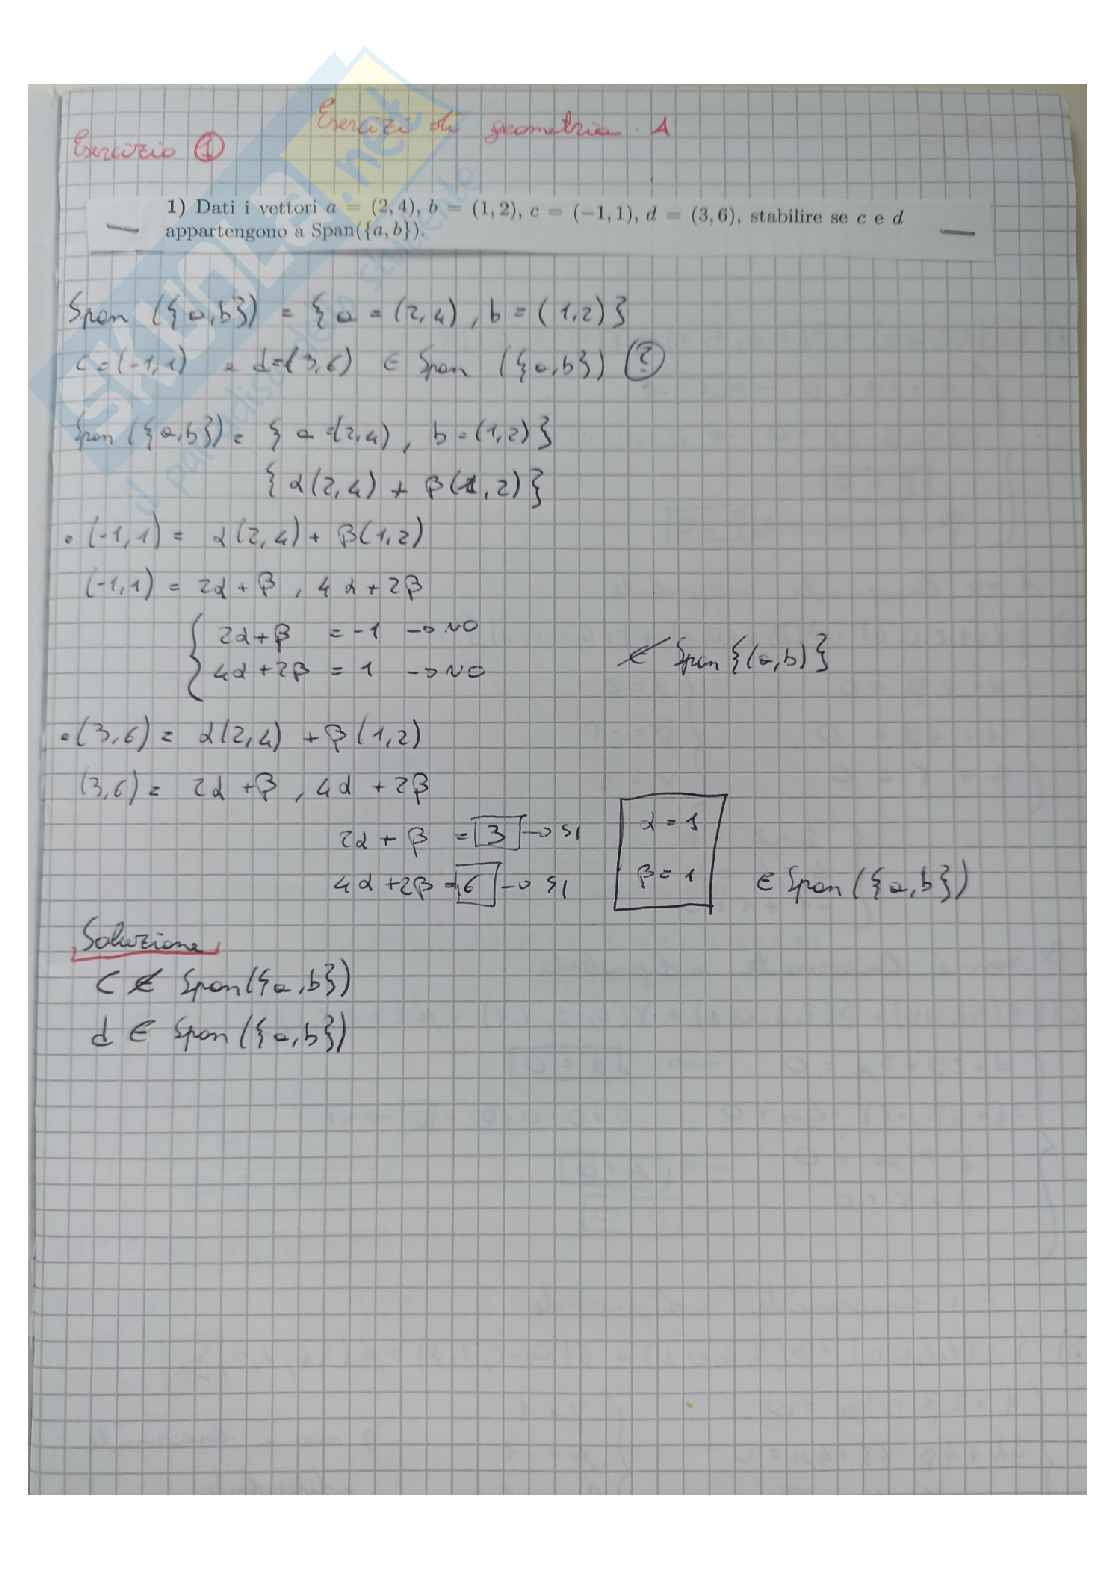 Esercizi di geometria A
Esercizio ①
1) Dati i vettori a = (2, 4), b = (1, 2), c = (−1, 1), d = (3, 6), stabilire se c e d
appartengono a Span({a, b}).
Span ({a,b}) = { a = (2,4) , b = (1,2)}
c = (-1,1) e d=(3,6) ∈ Span ({a,b}) ?
Span ({a,b}) = { a =(2,4) , b = (1,2)}
{ α(2,4) + β(1,2)}
• (-1,1) = α(2,4) + β(1,2)
(-1,1) = 2α + β , 4α + 2β
{ 2α + β = -1 → NO
4α + 2β = 1 → NO ∉ Span {(a,b)}
• (3,6) = α(2,4) + β(1,2)
(3,6) = 2α + β , 4α + 2β
2α + β = 3 → SI α = 1
4α + 2β = 6 → SI β = 1 ∈ Span ({a,b})
Soluzione
C ∉ Span({a,b})
d ∈ Span ({a,b})
SKUOLA.net